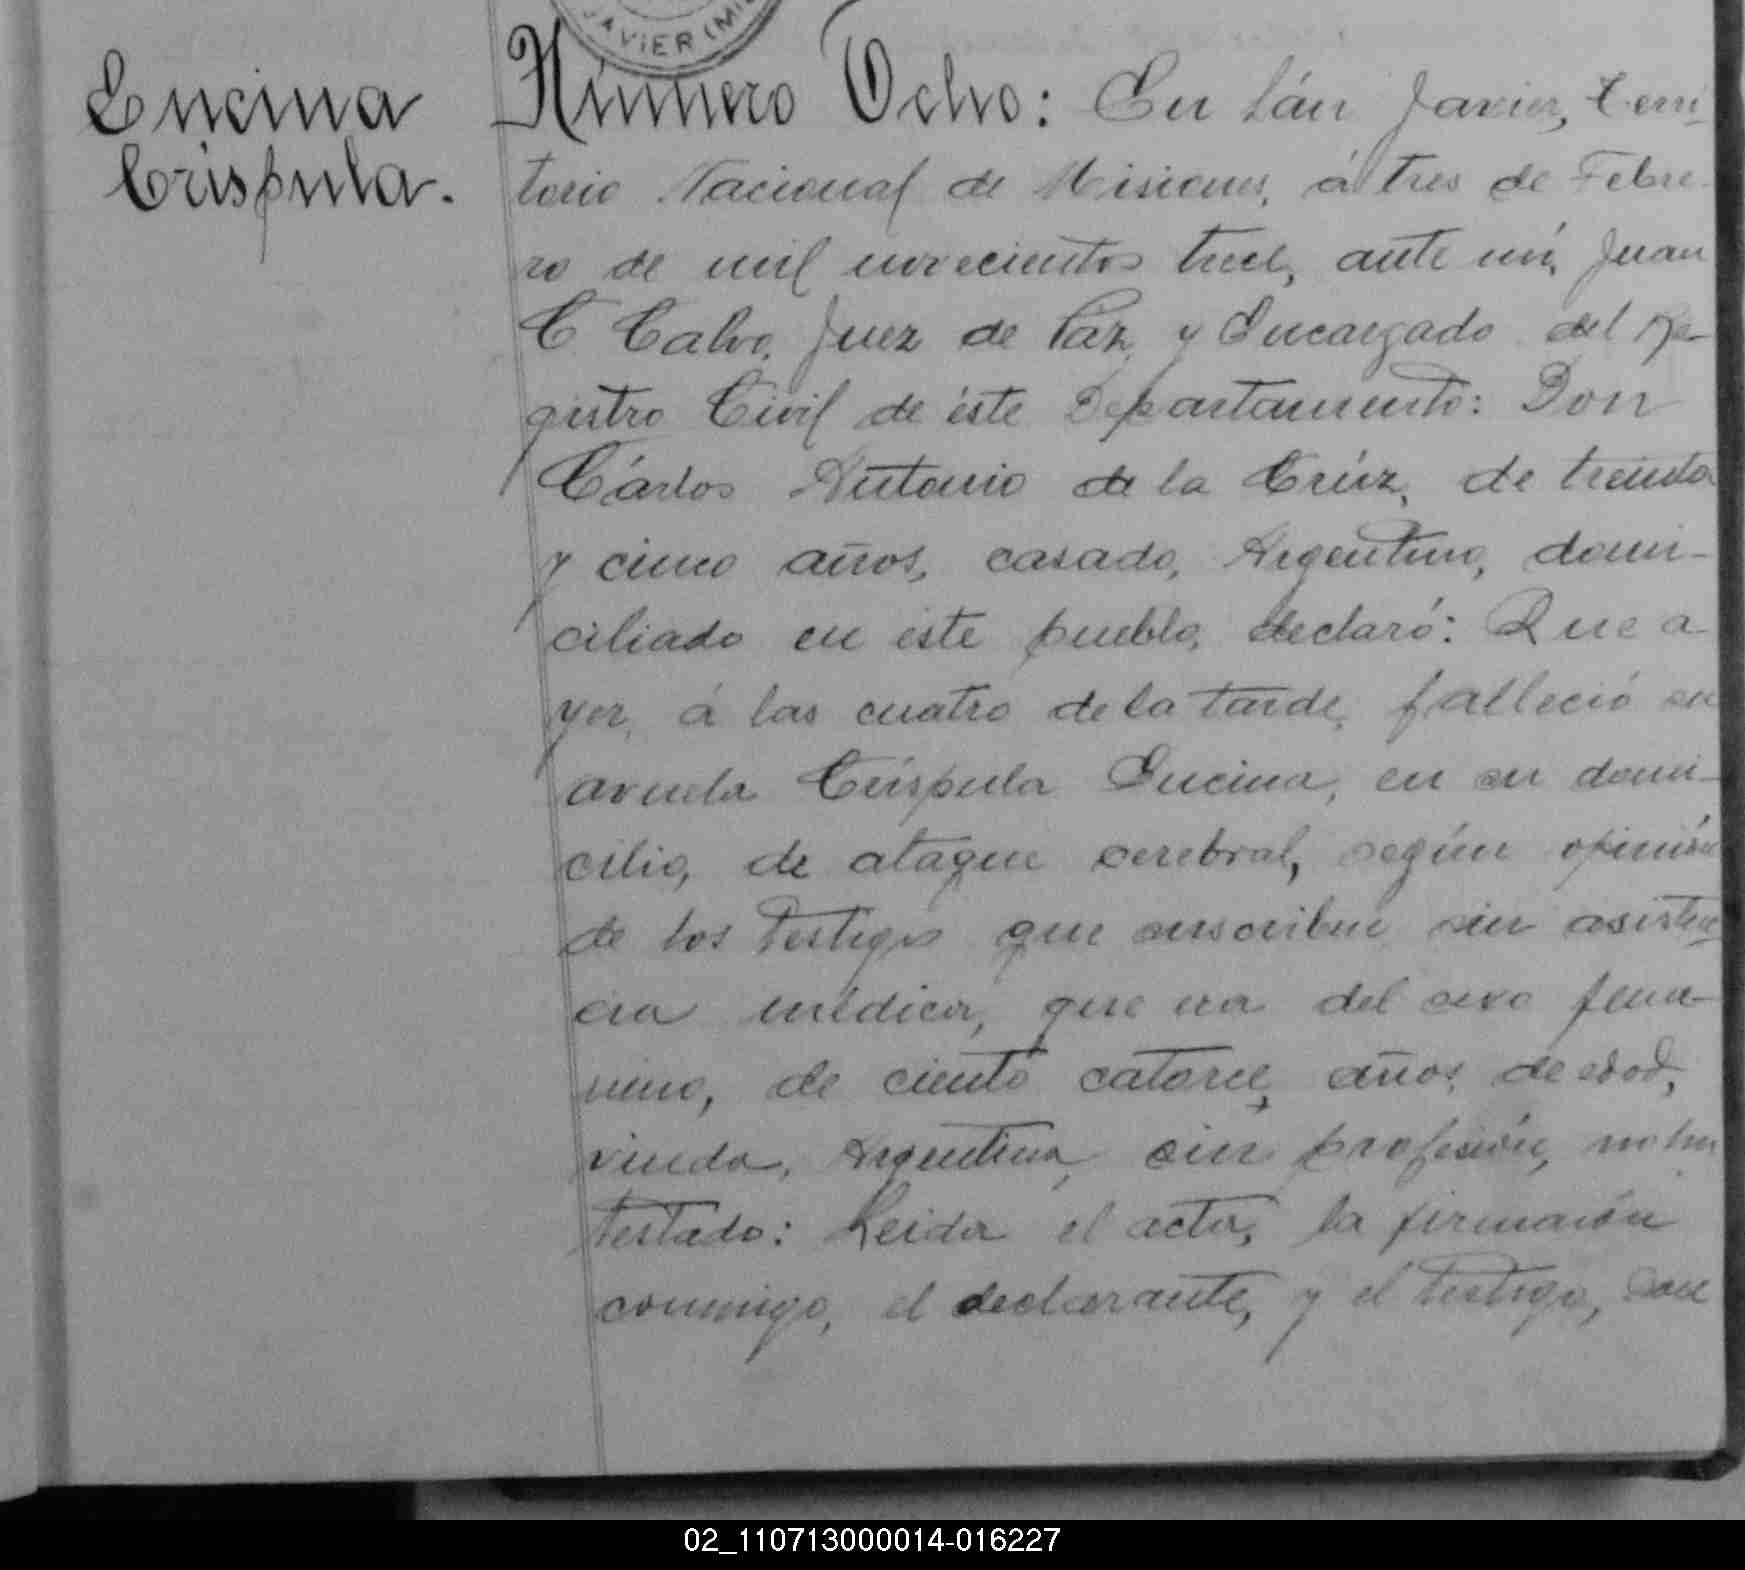 JAVIER (MIS
Encina
Crispula.
Número Ocho: En Sán Javier, Terri
torio Nacional de Misiones, á tres de Febre-
ro de mil novecientos trece, ante mí, Juan
C Calvo, Juez de Paz y Encargado del Re-
gistro Civil de éste Departamento: Don
Cárlos Antonio de la Crúz, de treinta
y cinco años, casado, Argentino, domi-
ciliado en éste pueblo, declaró: Que a-
yer, á las cuatro de la tarde, falleció su
avuela Críspula Encina, en su domi-
cilio, de ataque cerebral, según opinión
de los testigos que suscriben sin asisten
cia médica, que era del sexo feme-
nino, de ciento catorce, años, de edad,
viuda, Argentina, sin profesión, no ha
testado: Leida el acta, la firmarón
conmigo, el declarante, y el testigo, Don
02_110713000014-016227